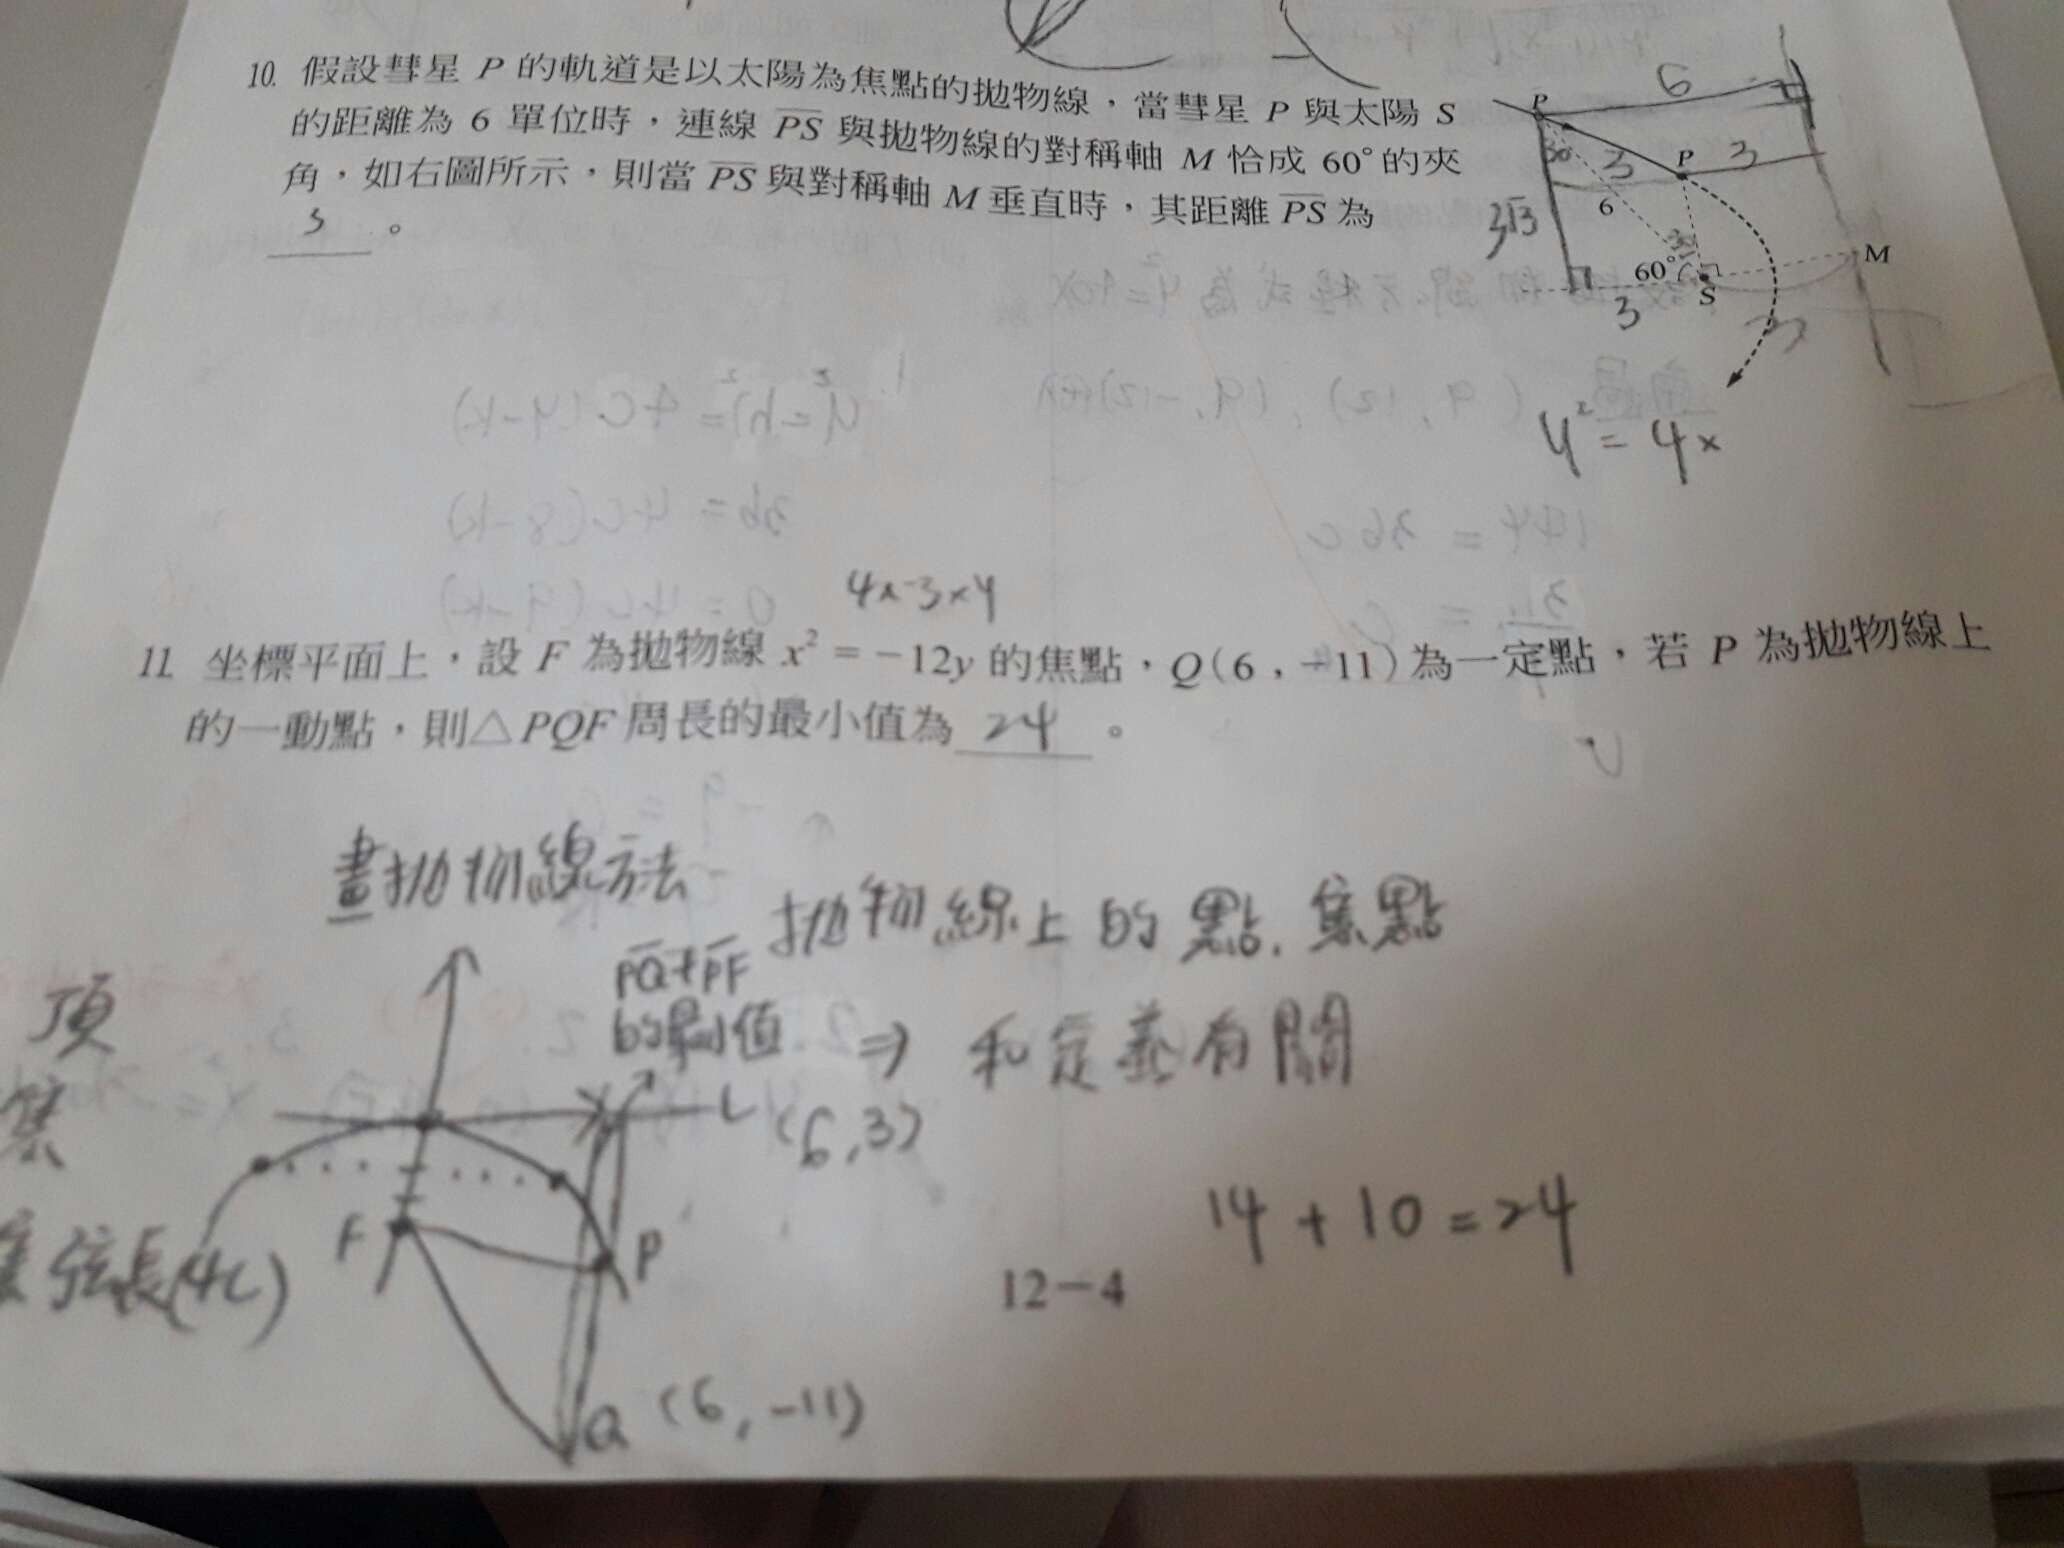 10. 假設彗星 P 的軌道是以太陽為焦點的拋物線，當彗星 P 與太陽 S
的距離為 6 單位時，連線 PS 與拋物線的對稱軸 M 恰成 60° 的夾
角，如右圖所示，則當 PS 與對稱軸 M 垂直時，其距離 PS 為
3 。
P
6
30
3
P
3
6
3√3
60°
S
M
3
3
y² = 4x
4×-3×y
11. 坐標平面上，設 F 為拋物線 x² = −12y 的焦點，Q(6 , −11) 為一定點，若 P 為拋物線上
的一動點，則△PQF 周長的最小值為 24 。
畫拋物線方法
拋物線上的點.焦點
PQ+PF
的最小值 ⇒ 和定義有關
頂
焦
L (6,3)
14 + 10 = 24
F
P
弦長(4c)
12−4
Q (6, -11)